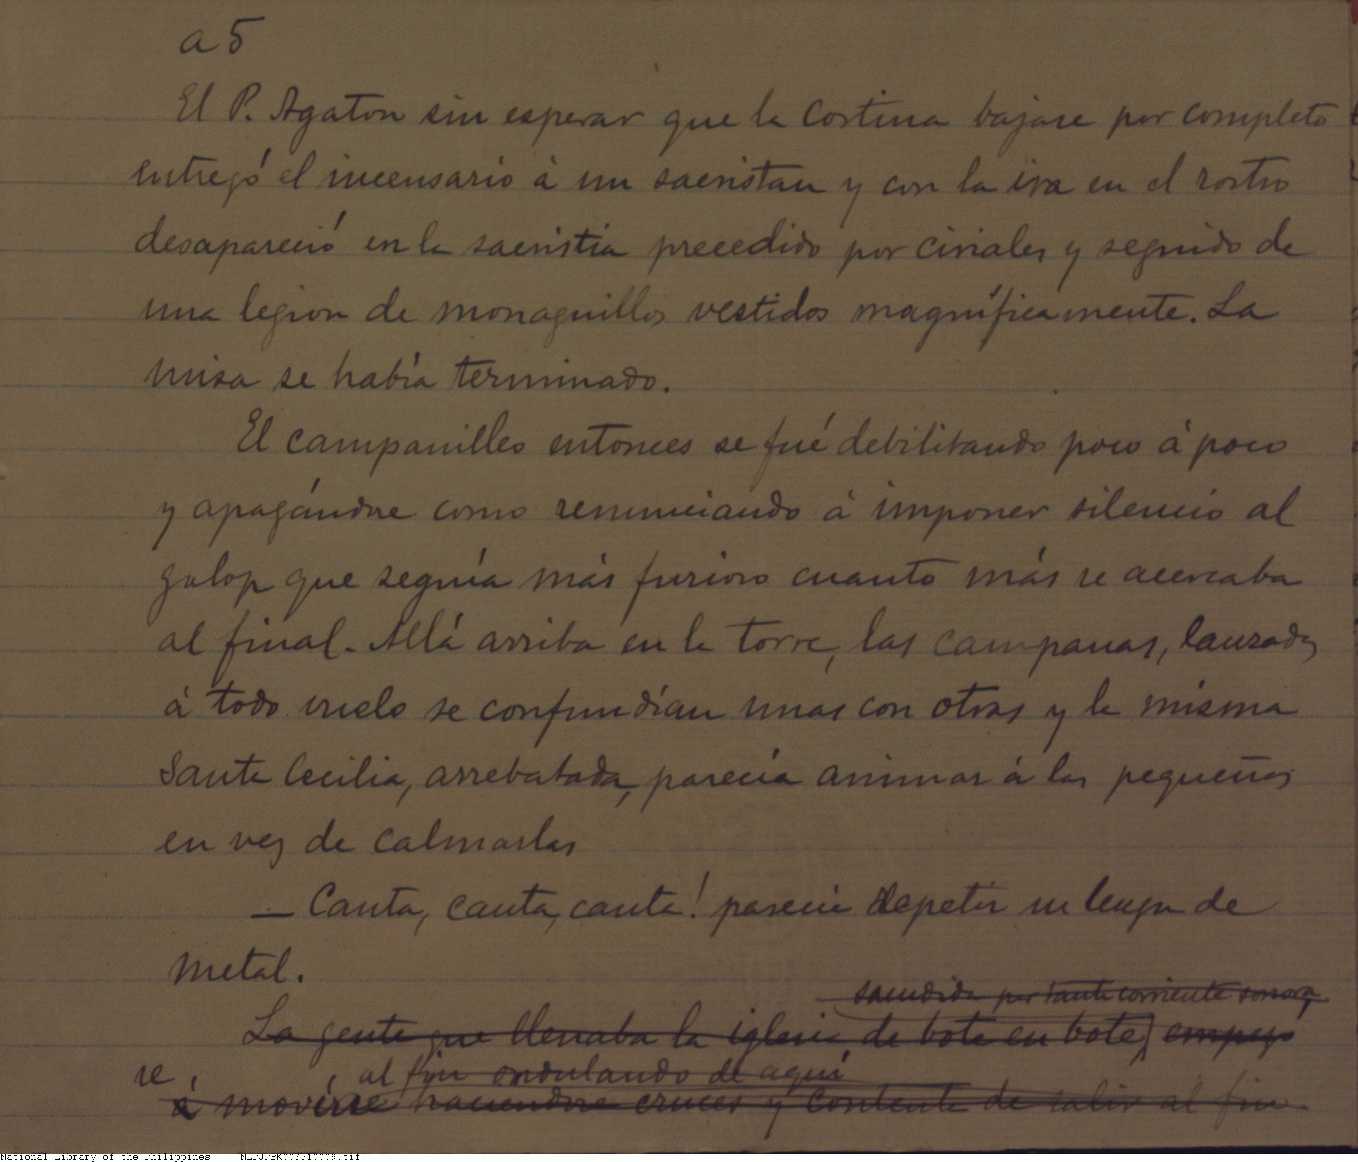 a 5
El P. Agaton sin esperar que la cortina bajase por completo
entregó el incensario á un sacristan y con la ira en el rostro
desapareció en la sacristia precedido por ciriales y seguido de
una legion de monaguillos vestidos magníficamente. La
misa se había terminado.
El campanilleo entonces se fué debilitando poco á poco
y apagándose como renunciando á imponer silencio al
galop que seguía más furioso cuanto más se acercaba
al final. Allá arriba en la torre, las campanas, lanzadas
á todo vuelo se confundían unas con otras y la misma
Santa Cecilia, arrebatada, parecía animar á las pequeñas
en vez de calmarlas
— Canta, canta, canta! parecia repetir su lengua de
metal.
sacudida por tanta corriente sonora,
La gente que llenaba la iglesia de bote en bote, empezó
se al fin ondulando de aquí
á moverse haciendose cruces y contenta de salir al fin.
National Library of the Philippines